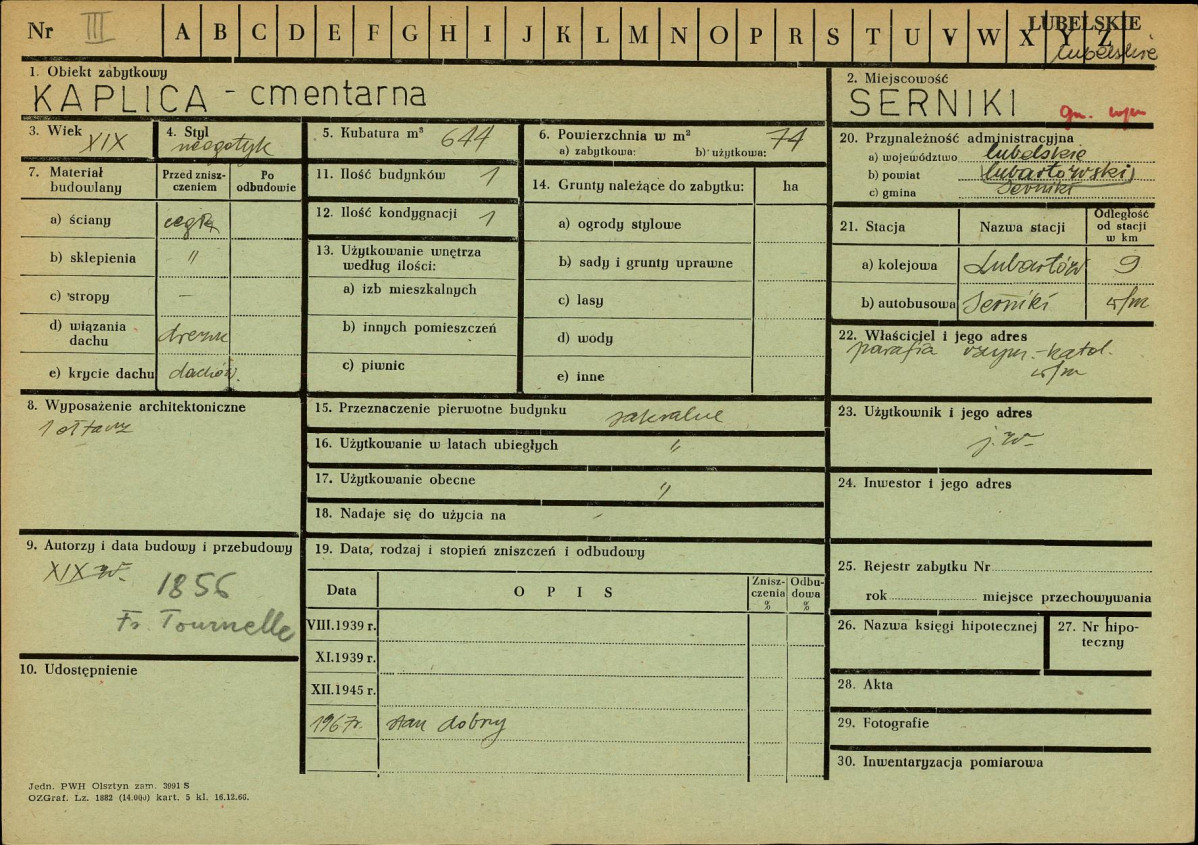 Nr III A B C D E F G H I J K L M N O P R S T U V W X Y Z
LUBELSKIE
lubelskie
1. Obiekt zabytkowy
KAPLICA - cmentarna
2. Miejscowość
SERNIKI
gm. w/m
3. Wiek XIX
4. Styl neogotyk
5. Kubatura m³ 644
6. Powierzchnia w m² 74
a) zabytkowa: b) użytkowa:
7. Materiał budowlany
Przed znisz-
czeniem
Po
odbudowie
a) ściany cegła
b) sklepienia "
c) stropy —
d) wiązania
dachu drewn
e) krycie dachu dachów.
8. Wyposażenie architektoniczne
1 ołtarz
9. Autorzy i data budowy i przebudowy
XIX w.
1856
Fr. Tournelle
10. Udostępnienie
11. Ilość budynków 1
12. Ilość kondygnacji 1
13. Użytkowanie wnętrza
według ilości:
a) izb mieszkalnych
b) innych pomieszczeń
c) piwnic
14. Grunty należące do zabytku: ha
a) ogrody stylowe
b) sady i grunty uprawne
c) lasy
d) wody
e) inne
15. Przeznaczenie pierwotne budynku sakralne
16. Użytkowanie w latach ubiegłych "
17. Użytkowanie obecne "
18. Nadaje się do użycia na -
19. Data, rodzaj i stopień zniszczeń i odbudowy
Data
OPIS
Znisz-
czenia
%
Odbu-
dowa
%
VIII.1939 r.
XI.1939 r.
XII.1945 r.
1967r. stan dobry
20. Przynależność administracyjna
a) województwo lubelskie
b) powiat lubartowski
c) gmina Serniki
21. Stacja
Nazwa stacji
Odległość
od stacji
w km
a) kolejowa Lubartów 9
b) autobusowa Serniki w/m
22. Właściciel i jego adres
parafia rzym.-katol.
w/m
23. Użytkownik i jego adres
j.w.
24. Inwestor i jego adres
25. Rejestr zabytku Nr
rok miejsce przechowywania
26. Nazwa księgi hipotecznej
27. Nr hipo-
teczny
28. Akta
29. Fotografie
30. Inwentaryzacja pomiarowa
Jedn. PWH Olsztyn zam. 3991 S
OZGraf. Lz. 1882 (14.000) kart. 5 kl. 16.12.66.